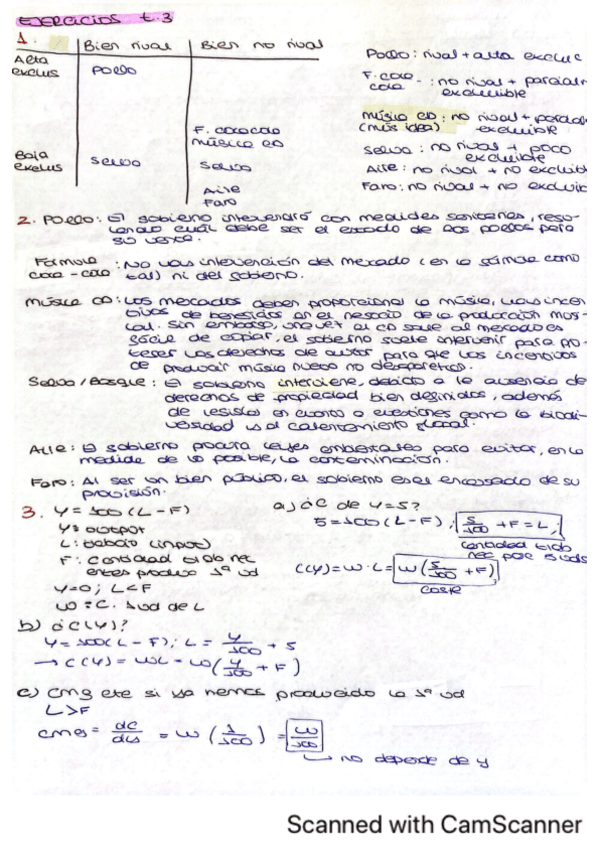 EJERCICIOS t.3
1. Bien rival Bien no rival
Alta exclus Pollo
F. coca cola
música CD
Baja exclus Selva Selva
Aire
Faro
Pollo: rival + alta exclu
F. coca-cola : no rival + parcialm excluible
música CD: no rival + parcialm (más idea) excluible
Selva: no rival + poco excluible
Aire: no rival + no excluib
Faro: no rival + no excluib
2. Pollo: El gobierno intervendrá con medidas sanitarias, regu-
lando cuál debe ser el estado de los pollos para
su venta.
Fórmula coca-cola : No hay intervención del mercado (en la fórmula como
tal) ni del gobierno.
música CD: Los mercados deben proporcionar la música, hay incen-
tivos de beneficios en el negocio de la producción mus-
cal. Sin embargo, una vez el CD sale al mercado es
fácil de copiar, el gobierno suele intervenir para pro-
teger los derechos de autor para que los incentivos
de producir música nueva no desaparezcan.
Selva / Bosque: El gobierno interviene, debido a la ausencia de
derechos de propiedad bien definidos, además
de legislar en cuanto a cuestiones como la biodi-
versidad y el calentamiento global.
Aire: El gobierno procura leyes ambientales para evitar, en la
medida de lo posible, la contaminación.
Faro: Al ser un bien público, el gobierno es el encargado de su
provisión.
3. Y = 100 (L - F)
Y = output
L: trabajo (input)
F: Cantidad trab nec
antes producir 1ª ud
Y = 0; L < F
W = C. 1 ud de L
a) ¿C de Y=5?
5 = 100 (L - F); 5/100 + F = L;
Cantidad trab
nec por 5 uds
C(Y) = W · L = W (5/100 + F)
coste
b) ¿C(Y)?
Y = 100 (L - F); L = Y/100 + 5
→ C(Y) = WL = W (Y/100 + F)
c) Cmg si ya hemos producido la 1ª ud
L > F
Cmg = dC/dy = W (1/100) = W/100
↳ no depende de y
Scanned with CamScanner